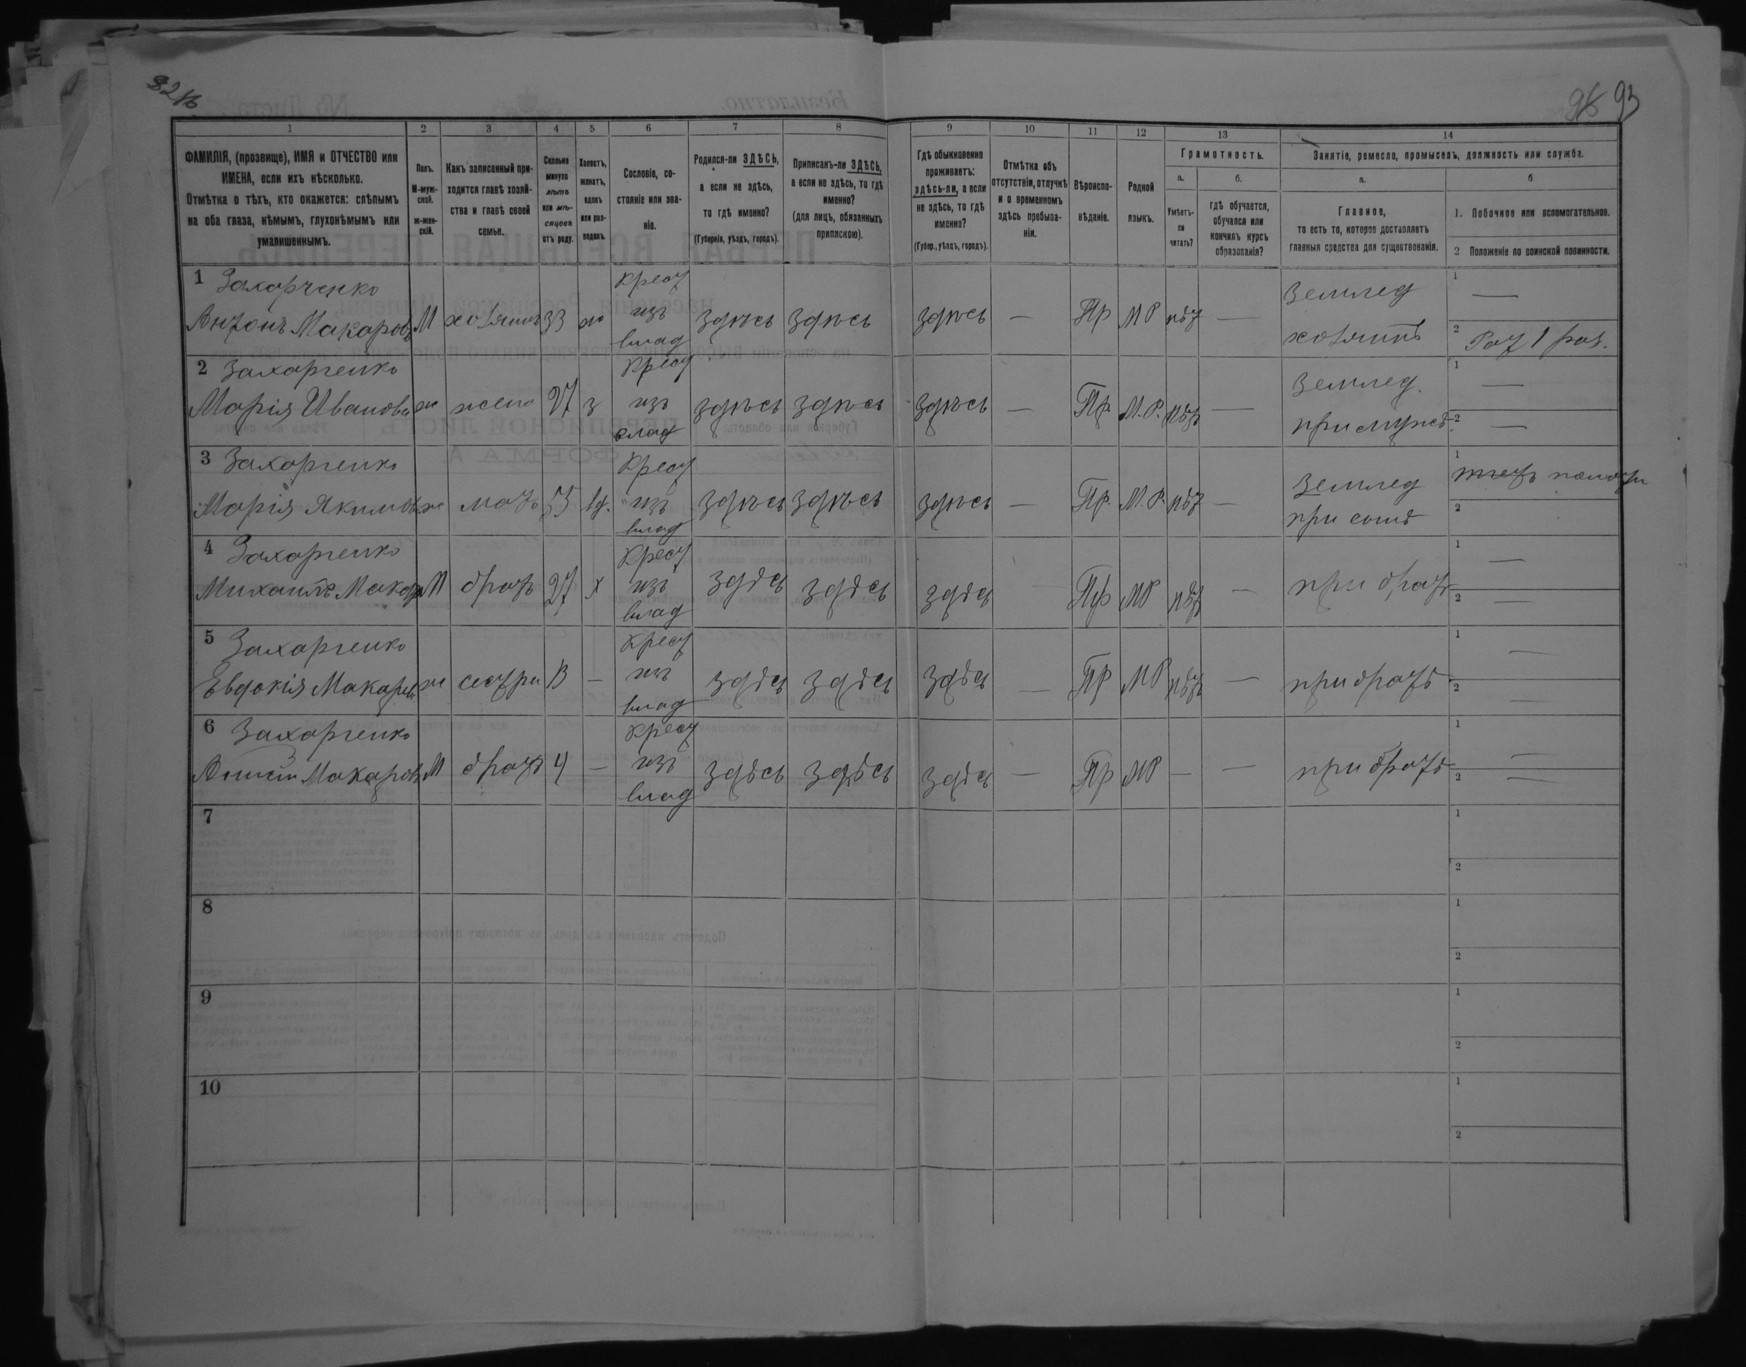 93
1 2 3 4 5 6 7 8 9 10 11 12 13 14
ФАМИЛІЯ, (прозвище), ИМЯ и ОТЧЕСТВО или ИМЕНА, если ихъ нѣсколько.
Отмѣтка о тѣхъ, кто окажется: слѣпымъ на оба глаза, нѣмымъ, глухонѣмымъ или умалишеннымъ.
Полъ.
М-муж-
ской.
ж-жен-
скій.
Какъ записанный при-
ходится главѣ хозяй-
ства и главѣ своей
семьи.
Сколько
минуло
лѣтъ
или мѣ-
сяцевъ
отъ роду.
Холостъ,
женатъ,
вдовъ
или раз-
веденъ.
Сословіе, со-
стояніе или зва-
ніе.
Родился-ли ЗДѢСЬ,
а если не здѣсь,
то гдѣ именно?
(Губернія, уѣздъ, городъ).
Приписанъ-ли ЗДѢСЬ,
а если не здѣсь, то гдѣ
именно?
(для лицъ, обязанныхъ
припискою).
Гдѣ обыкновенно
проживаетъ:
здѣсь-ли, а если
не здѣсь, то гдѣ
именно?
(Губер., уѣздъ, городъ).
Отмѣтка объ
отсутствіи, отлучкѣ
и о временномъ
здѣсь пребыва-
ніи.
Вѣроиспо-
вѣданіе.
Родной
языкъ.
Грамотность.
а.
Умѣетъ-
ли
читать?
б.
гдѣ обучается,
обучался или
кончилъ курсъ
образованія?
Занятіе, ремесло, промыселъ, должность или служба.
а.
Главное,
то есть то, которое доставляетъ
главныя средства для существованія.
б
1. Побочное или вспомогательное.
2 Положеніе по воинской повинности.
1 Захорченко
Антонъ Макаровъ М хозяинъ 33 ж Крест изъ влад здѣсь здѣсь здѣсь — Пр МР нѣт — Землед хозяинъ 1 — 2 Рат 1 раз.
2 Захорченко
Марія Иванова ж жена 27 з Крест изъ влад здѣсь здѣсь здѣсь — Пр М.Р. нѣтъ — Землед. при мужѣ 1 — 2 —
3 Захорченко
Марія Якимов ж мать 55 вд. Крест изъ влад здѣсь здѣсь здѣсь — Пр. М.Р. нѣт — Землед при сынѣ 1 2
4 Захорченко
Михаилъ Макар М братъ 27 х Крест изъ влад здѣсь здѣсь здѣсь Пр МР нѣт — при братѣ 1 — 2 —
5 Захорченко
Евдокія Макаров ж сестра 13 — Крест изъ влад здѣсь здѣсь здѣсь — Пр МР нѣтъ — при братѣ 1 — 2 —
6 Захорченко
Макаров М братъ 4 — Крест изъ влад здѣсь здѣсь здѣсь — Пр МР — — при братѣ 1 — 2 —
7 1 2
8 1 2
9 1 2
10 1 2